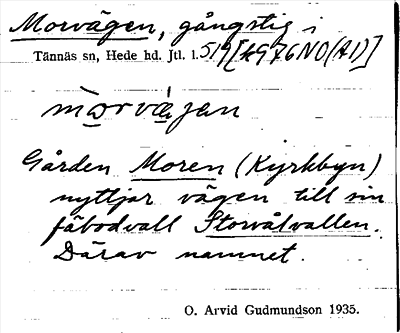 Morvägen, gångstig i
Tännäs sn, Hede hd. Jtl. l. 519 [k976NO(A1)]
mo̲rvä̲gan
Gården Moren (Kyrkbyn)
nyttjar vägen till sin
fäbodvall Storvålvallen.
Därav namnet.
O. Arvid Gudmundson 1935.